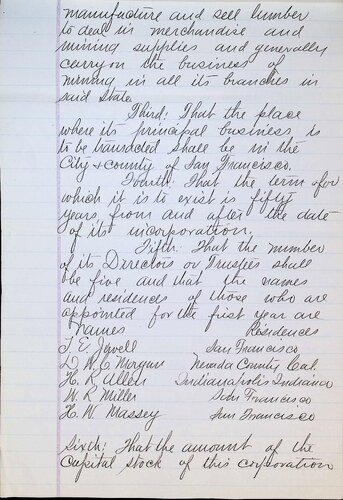 manufacture and sell lumber
to deal in merchandise and
mining supplies and generally
carry on the business of
mining in all its branches in
said State.
Third: That the place
where its principal business is
to be transacted shall be in the
City & county of San Francisco.
Fourth: That the term for
which it is to exist is fifty
years, from and after the date
of its incorporation.
Fifth: That the number
of its Directors or Trustees shall
be five and that the names
and residences of those who are
appointed for the first year are
Names Residences
T. E. San Francisco
D. W. C. Morgan Nevada County Cal.
H. R. Allen Indianapolis Indiana
W. R. Miller San Francisco
H. W. Massey San Francisco
Sixth: That the amount of the
Capital Stock of this corporation